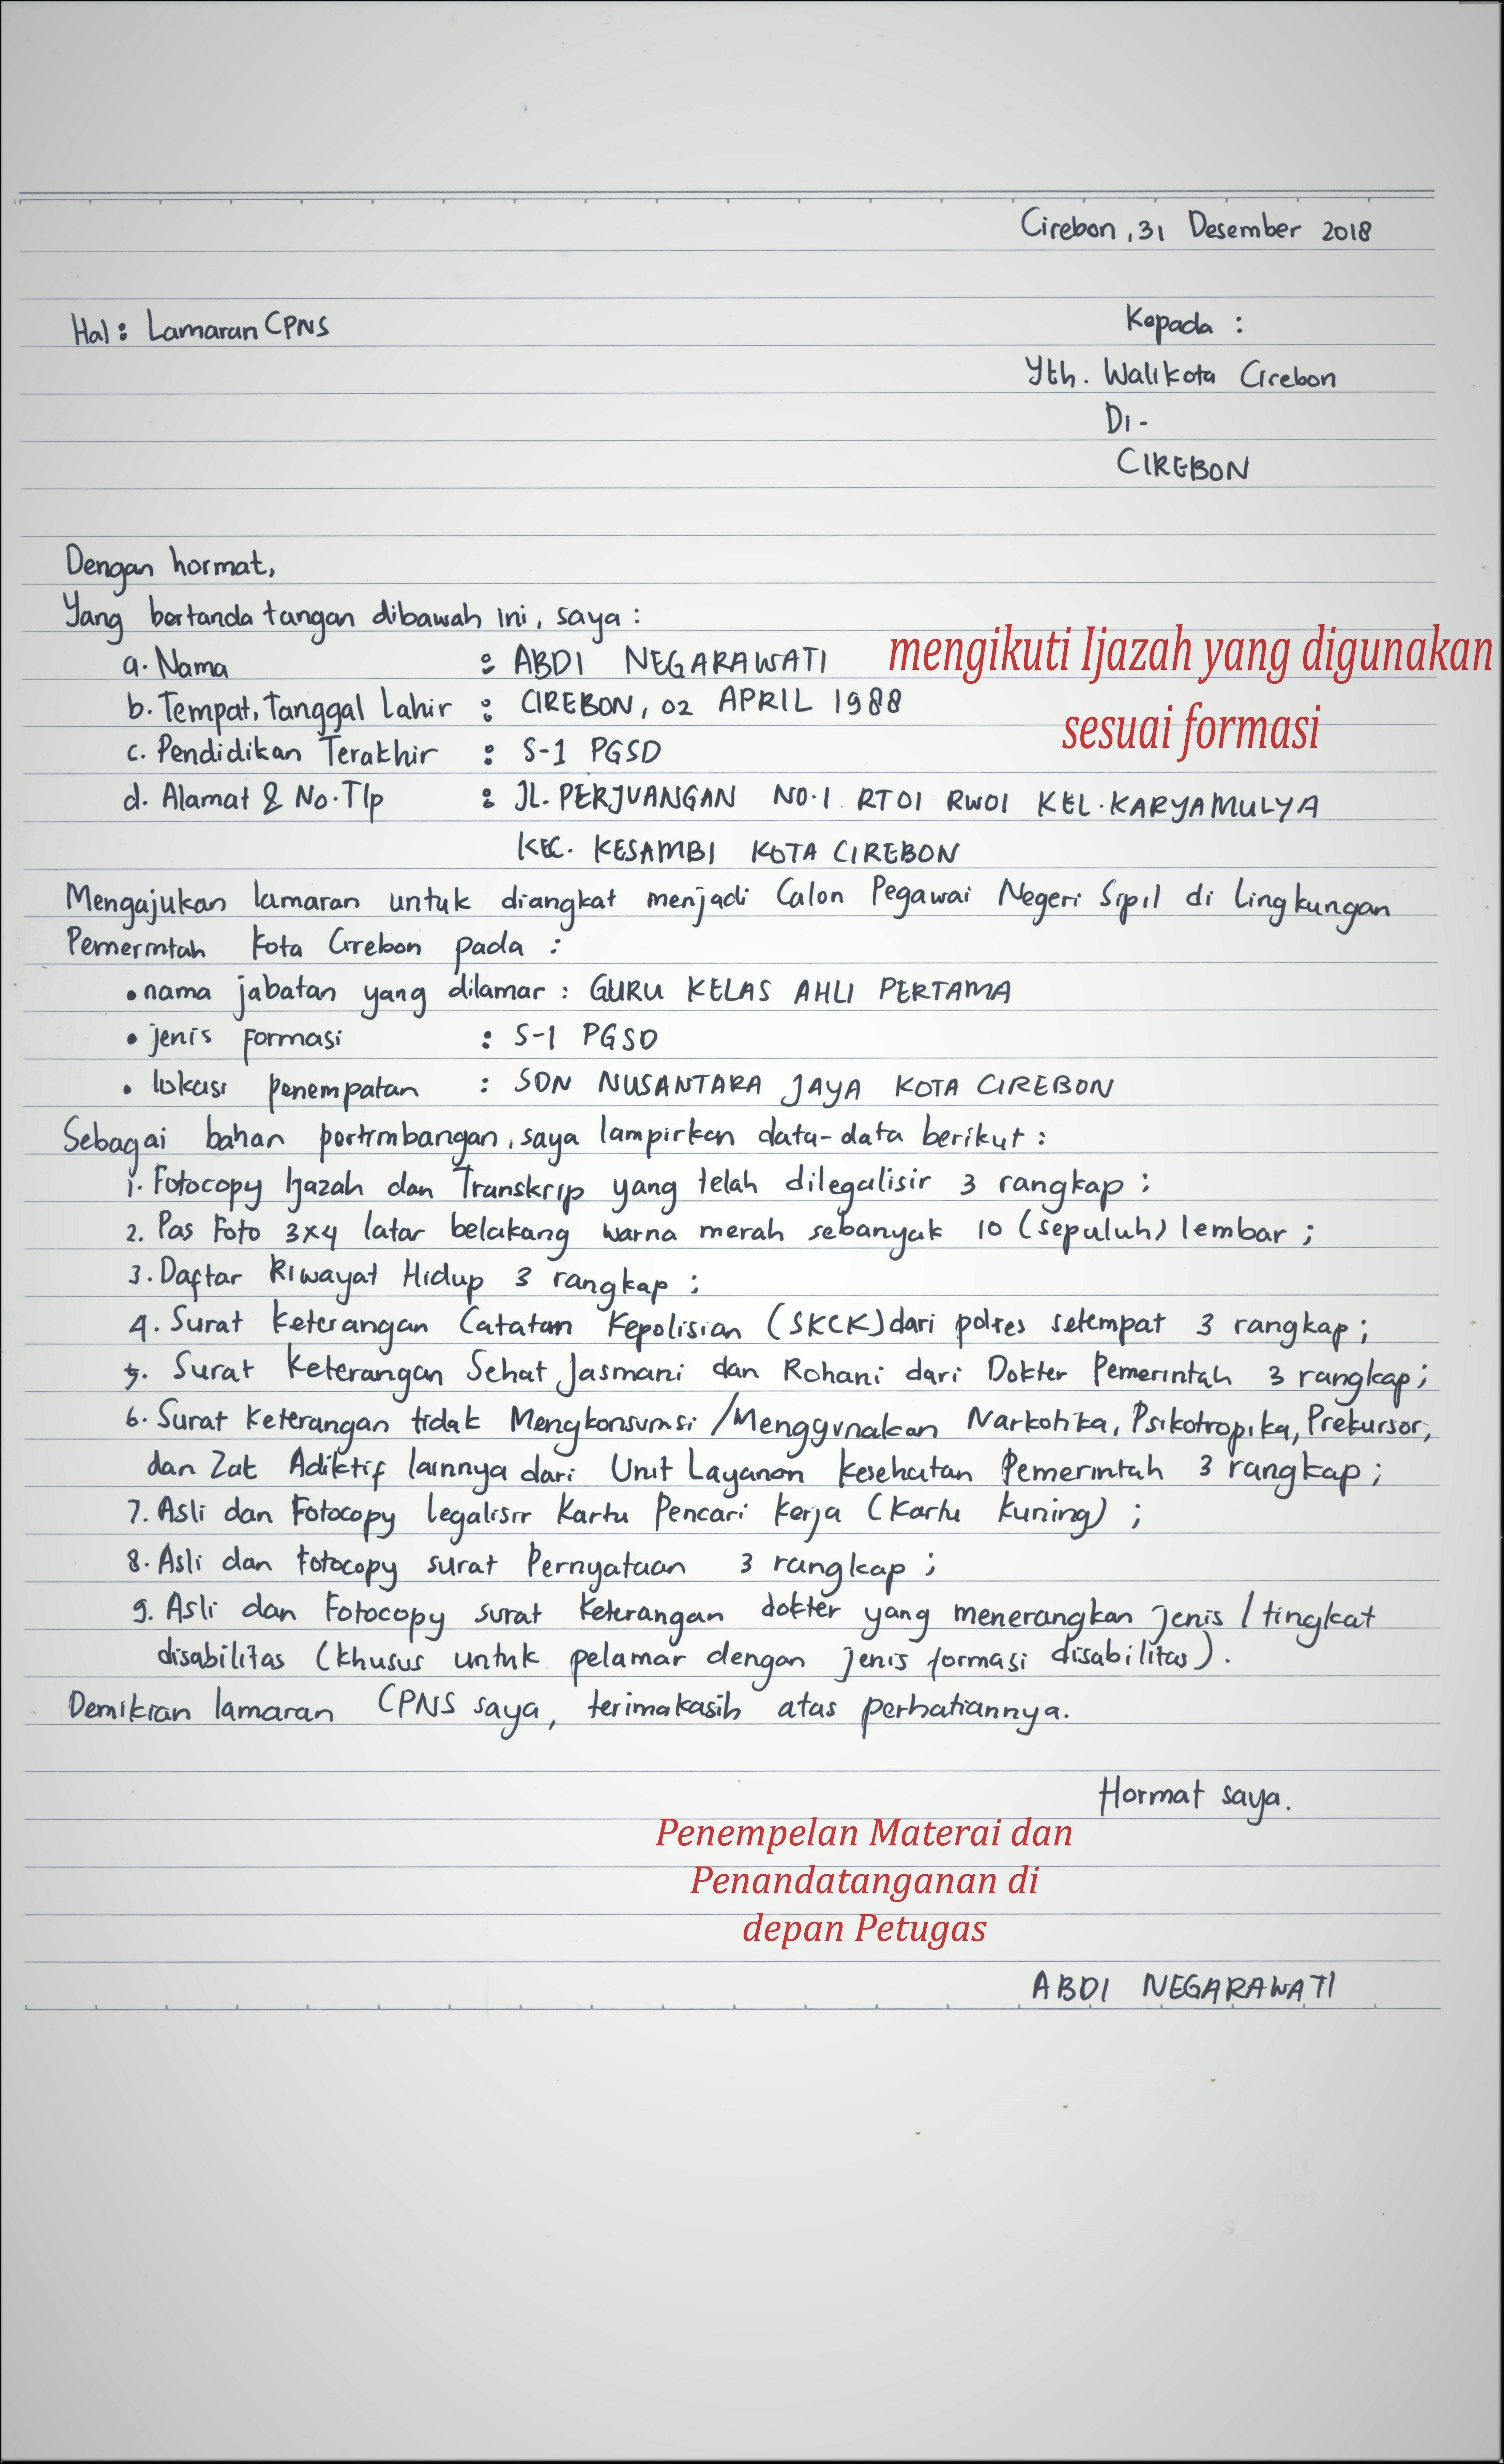 Cirebon, 31 Desember 2018
Hal : Lamaran CPNS
Kepada :
Yth. Walikota Cirebon
Di -
CIREBON
Dengan hormat,
Yang bertanda tangan dibawah ini, saya :
a. Nama : ABDI NEGARAWATI
mengikuti Ijazah yang digunakan
sesuai formasi
b. Tempat, Tanggal Lahir : CIREBON, 02 APRIL 1988
c. Pendidikan Terakhir : S-1 PGSD
d. Alamat & No. Tlp : JL. PERJUANGAN NO.1 RT01 RW01 KEL. KARYAMULYA
KEC. KESAMBI KOTA CIREBON
Mengajukan lamaran untuk diangkat menjadi Calon Pegawai Negeri Sipil di Lingkungan
Pemerintah Kota Cirebon pada :
• nama jabatan yang dilamar : GURU KELAS AHLI PERTAMA
• jenis formasi : S-1 PGSD
• lokasi penempatan : SDN NUSANTARA JAYA KOTA CIREBON
Sebagai bahan pertimbangan, saya lampirkan data-data berikut :
1. Fotocopy Ijazah dan Transkrip yang telah dilegalisir 3 rangkap ;
2. Pas Foto 3x4 latar belakang warna merah sebanyak 10 (sepuluh) lembar ;
3. Daftar Riwayat Hidup 3 rangkap ;
4. Surat keterangan Catatan Kepolisian (SKCK) dari polres setempat 3 rangkap ;
5. Surat Keterangan Sehat Jasmani dan Rohani dari Dokter Pemerintah 3 rangkap ;
6. Surat Keterangan tidak Mengkonsumsi / Menggunakan Narkotika, Psikotropika, Prekursor,
dan Zat Adiktif lainnya dari Unit Layanan Kesehatan Pemerintah 3 rangkap ;
7. Asli dan Fotocopy legalisir Kartu Pencari Kerja (Kartu Kuning) ;
8. Asli dan Fotocopy surat Pernyataan 3 rangkap ;
9. Asli dan Fotocopy surat Keterangan dokter yang menerangkan jenis / tingkat
disabilitas (khusus untuk pelamar dengan jenis formasi disabilitas).
Demikian lamaran CPNS saya, terimakasih atas perhatiannya.
Hormat saya.
Penempelan Materai dan
Penandatanganan di
depan Petugas
ABDI NEGARAWATI